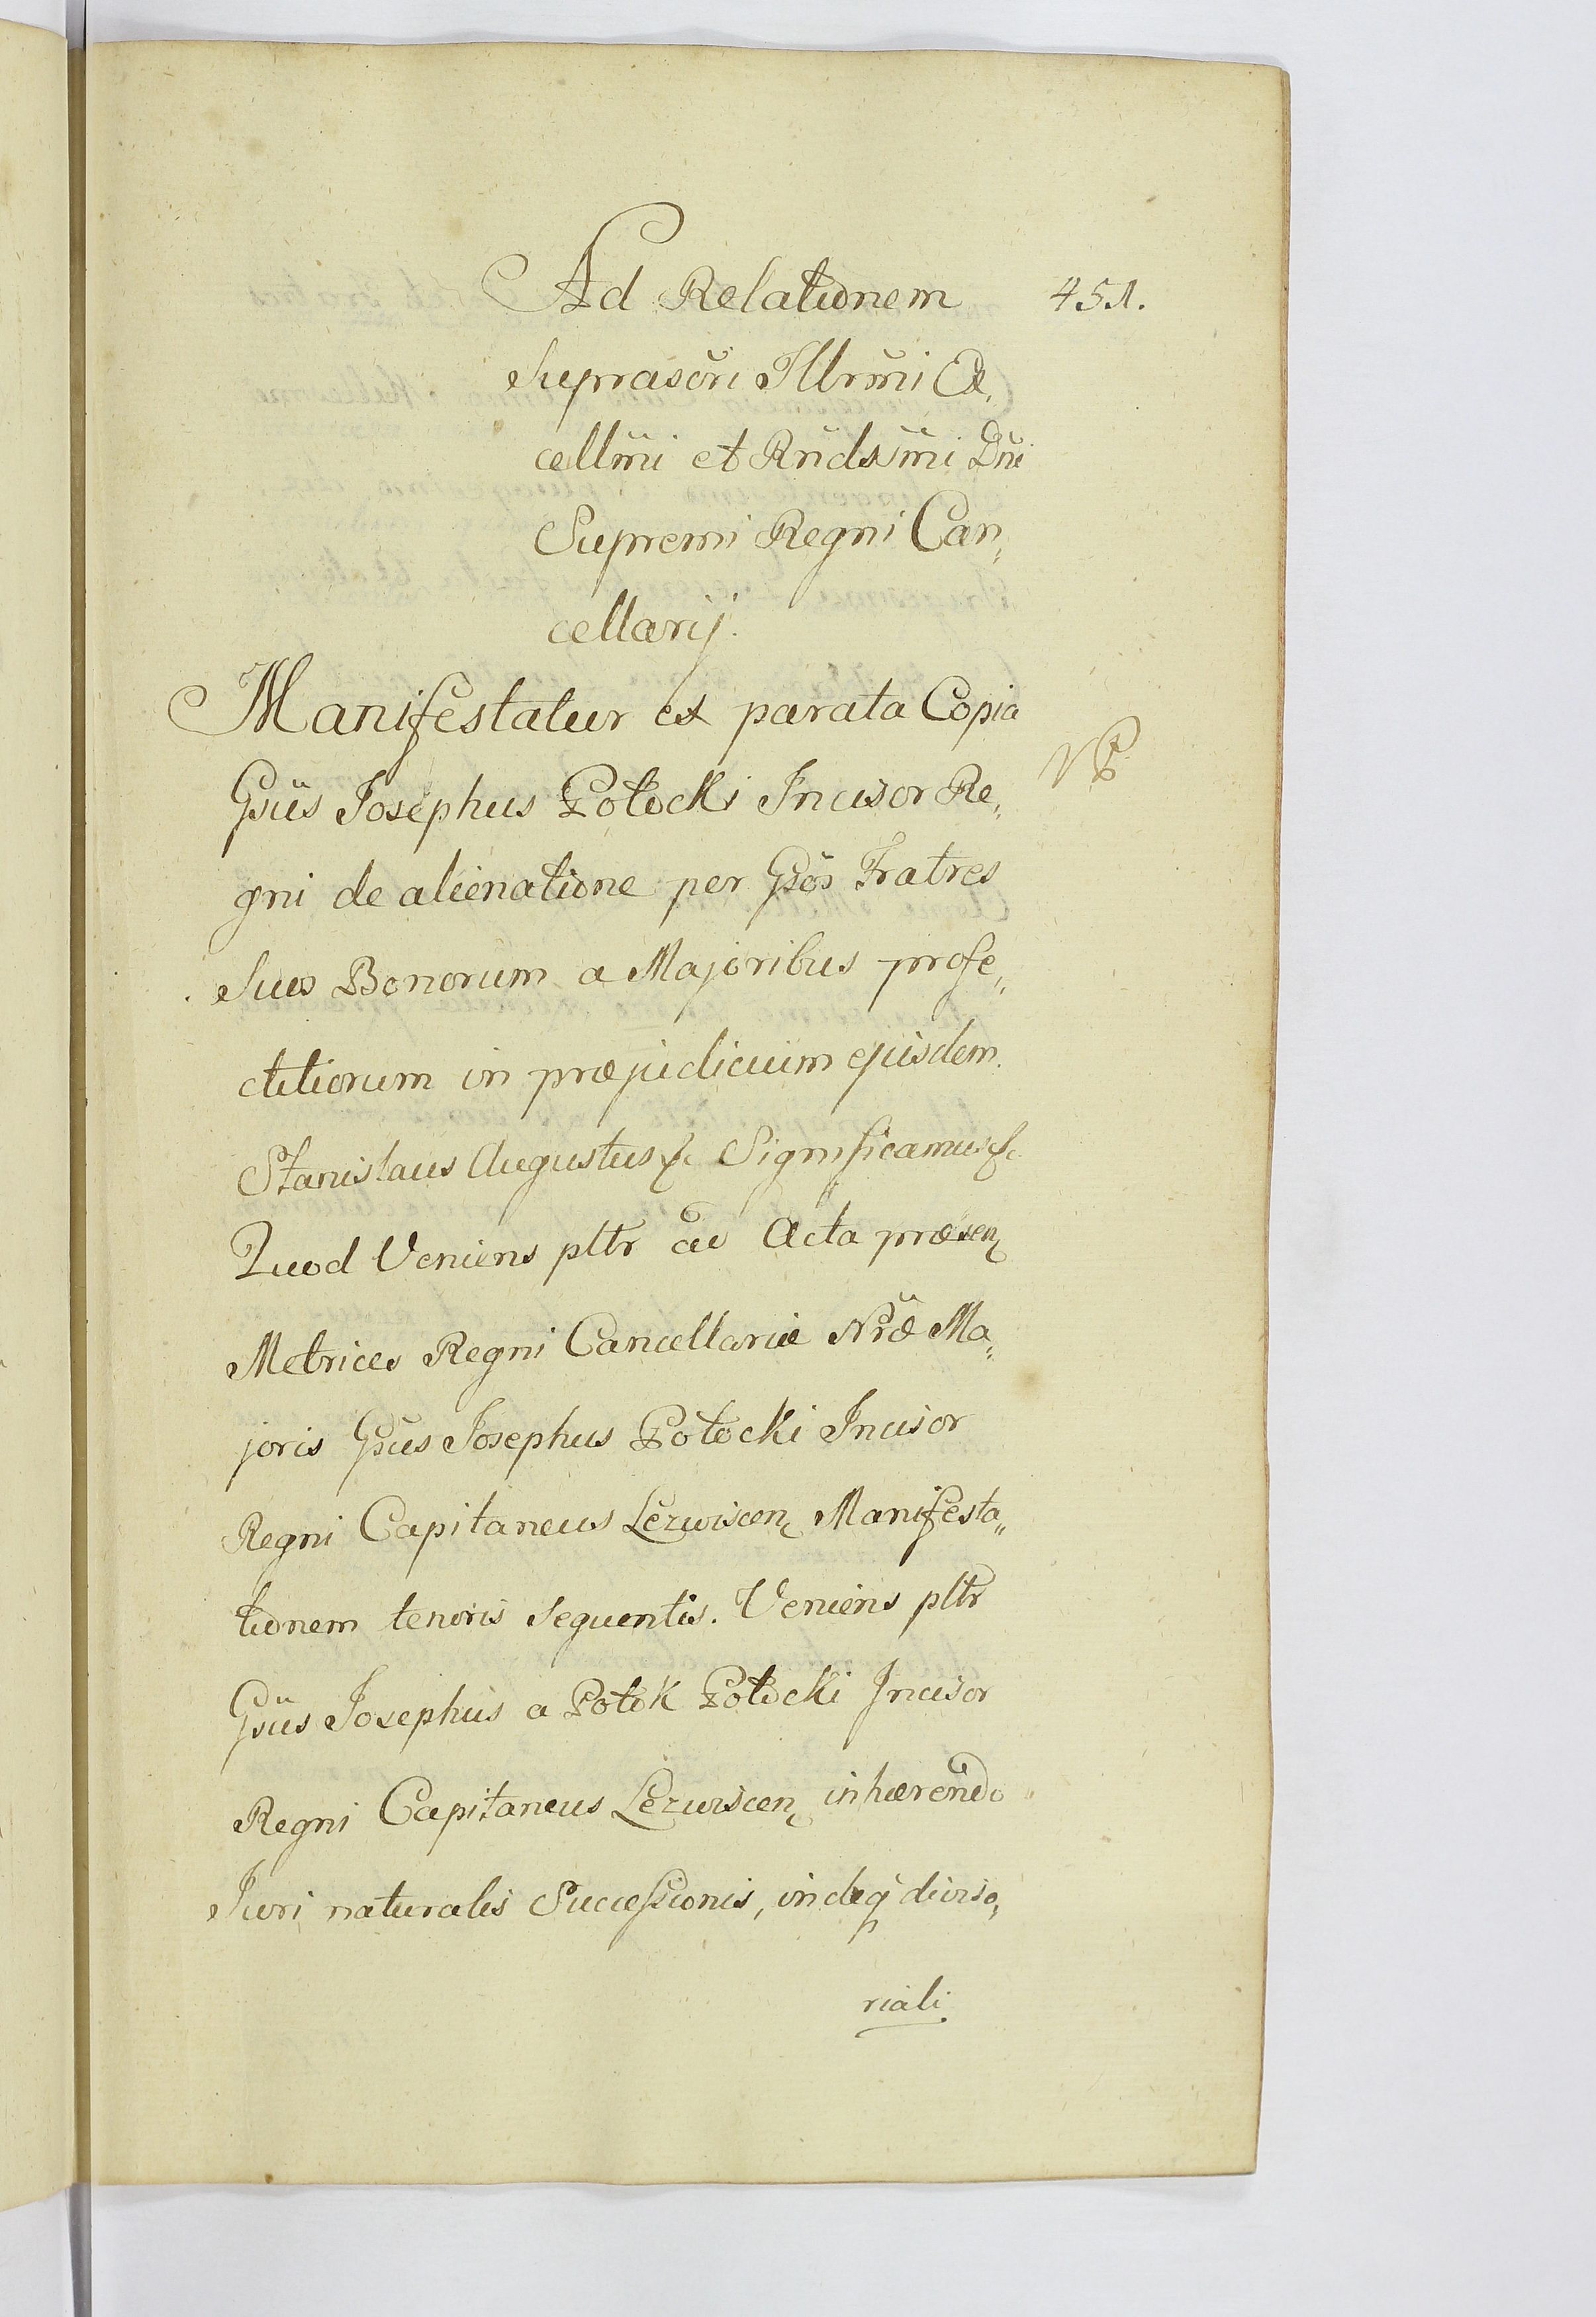 Ad Relationem 451.
Suprascri Illrmi Ex,
cellmi et Rndssmi Dni
Supremi Regni Can,
cellarij.
Manifestatur ex parata Copia
Gsus Josephus Potocki Incisor Re„
gni de alienatione per Gsos Fratres
Suos Bonorum a Majoribus profe„
ctitiorum in præjudicium ejusdem.
Stanislaus Augustus &c Significamus &c
Quod Veniens pltr ad Acta præsen
Metrices Regni Cancellariæ Nræ Ma„
joris Gsus Josephus Potocki Incisor
Regni Capitaneus Lezuiscen Manifesta„
tionem tenoris sequentis. Veniens pltr
Gsus Josephus a Potok Potocki Incisor
Regni Capitaneus Lezuiscen inhærendo
Juri naturalis Successionis, indeq diviso,
riali